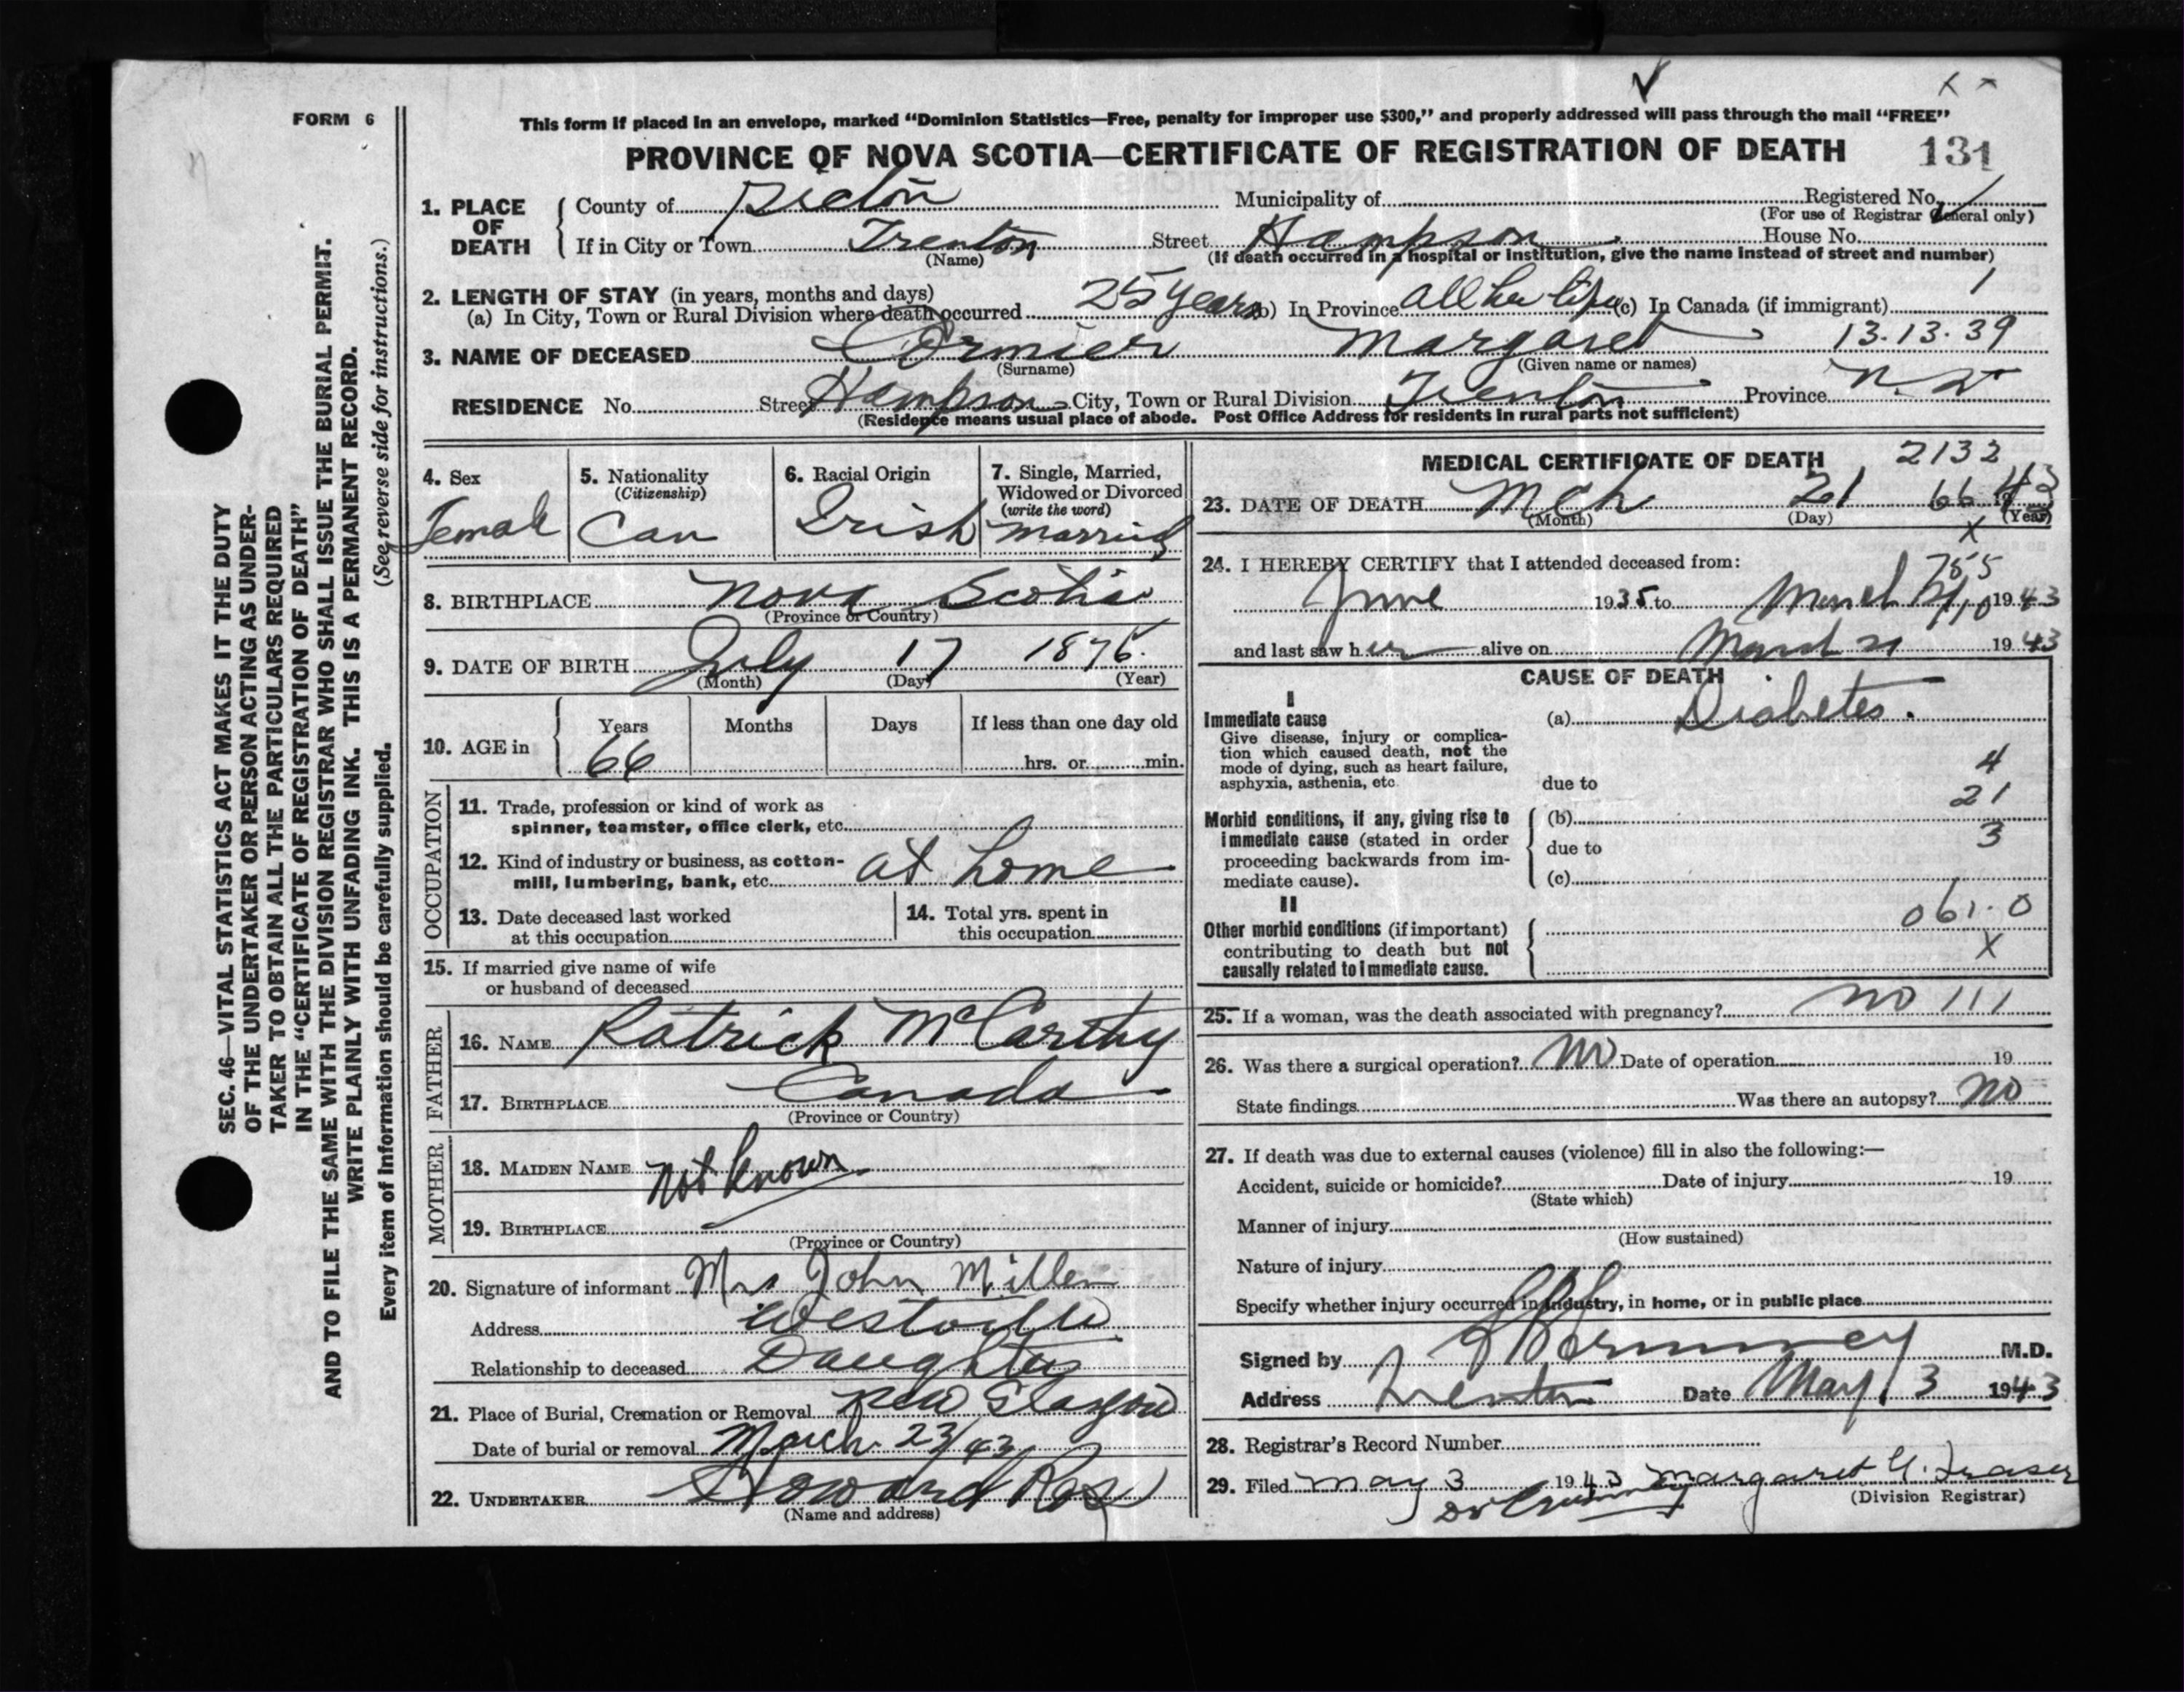 FORM 6
This form if placed in an envelope, marked “Dominion Statistics—Free, penalty for improper use $300,” and properly addressed will pass through the mail “FREE”
PROVINCE OF NOVA SCOTIA—CERTIFICATE OF REGISTRATION OF DEATH 131
1. PLACE OF DEATH County of Pictou Municipality of Registered No.
(For use of Registrar General only)
If in City or Town Trenton Street Hampson House No.
(Name) (If death occurred in a hospital or institution, give the name instead of street and number)
2. LENGTH OF STAY (in years, months and days)
(a) In City, Town or Rural Division where death occurred 25 years (b) In Province all her life (c) In Canada (if immigrant) 1
3. NAME OF DECEASED Cormier Margaret 13.13.39
(Surname) (Given name or names)
RESIDENCE No. Street Hampson City, Town or Rural Division Trenton Province N.S.
(Residence means usual place of abode. Post Office Address for residents in rural parts not sufficient)
4. Sex Female
5. Nationality (Citizenship) Can
6. Racial Origin Irish
7. Single, Married, Widowed or Divorced (write the word) Married
8. BIRTHPLACE Nova Scotia
(Province or Country)
9. DATE OF BIRTH July 17 1876
(Month) (Day) (Year)
10. AGE in Years Months Days If less than one day old
66 hrs. or min.
OCCUPATION
11. Trade, profession or kind of work as
spinner, teamster, office clerk, etc.
12. Kind of industry or business, as cotton-
mill, lumbering, bank, etc. at home
13. Date deceased last worked
at this occupation
14. Total yrs. spent in
this occupation
15. If married give name of wife
or husband of deceased
FATHER
16. NAME Patrick McCarthy
17. BIRTHPLACE Canada
(Province or Country)
MOTHER
18. MAIDEN NAME not known
19. BIRTHPLACE
(Province or Country)
20. Signature of informant Mrs John Miller
Address Westville
Relationship to deceased Daughter
21. Place of Burial, Cremation or Removal New Glasgow
Date of burial or removal March 23/43
22. UNDERTAKER Howard Ross
(Name and address)
MEDICAL CERTIFICATE OF DEATH 2132
23. DATE OF DEATH Mch 21 66 1943
(Month) (Day) (Year)
X
24. I HEREBY CERTIFY that I attended deceased from:
755
June 1935 to March 21 1943
110
and last saw her alive on March 21 1943
CAUSE OF DEATH
I
Immediate cause (a) Diabetes.
Give disease, injury or complica-
tion which caused death, not the
mode of dying, such as heart failure,
asphyxia, asthenia, etc. due to
4
21
Morbid conditions, if any, giving rise to (b)
3
immediate cause (stated in order due to
proceeding backwards from im-
mediate cause). (c)
II
061.0
Other morbid conditions (if important)
contributing to death but not X
causally related to immediate cause.
25. If a woman, was the death associated with pregnancy? no 111
26. Was there a surgical operation? No Date of operation 19
State findings Was there an autopsy? No
27. If death was due to external causes (violence) fill in also the following:—
Accident, suicide or homicide? Date of injury 19
(State which)
Manner of injury
(How sustained)
Nature of injury
Specify whether injury occurred in industry, in home, or in public place
Signed by M.D.
Address Trenton Date May 3 1943
28. Registrar's Record Number
29. Filed May 3 1943 Margaret G. Fraser
(Division Registrar)
Dr
SEC. 46—VITAL STATISTICS ACT MAKES IT THE DUTY
OF THE UNDERTAKER OR PERSON ACTING AS UNDER-
TAKER TO OBTAIN ALL THE PARTICULARS REQUIRED
IN THE “CERTIFICATE OF REGISTRATION OF DEATH”
AND TO FILE THE SAME WITH THE DIVISION REGISTRAR WHO SHALL ISSUE THE BURIAL PERMIT.
WRITE PLAINLY WITH UNFADING INK. THIS IS A PERMANENT RECORD.
Every item of information should be carefully supplied. (See reverse side for instructions.)